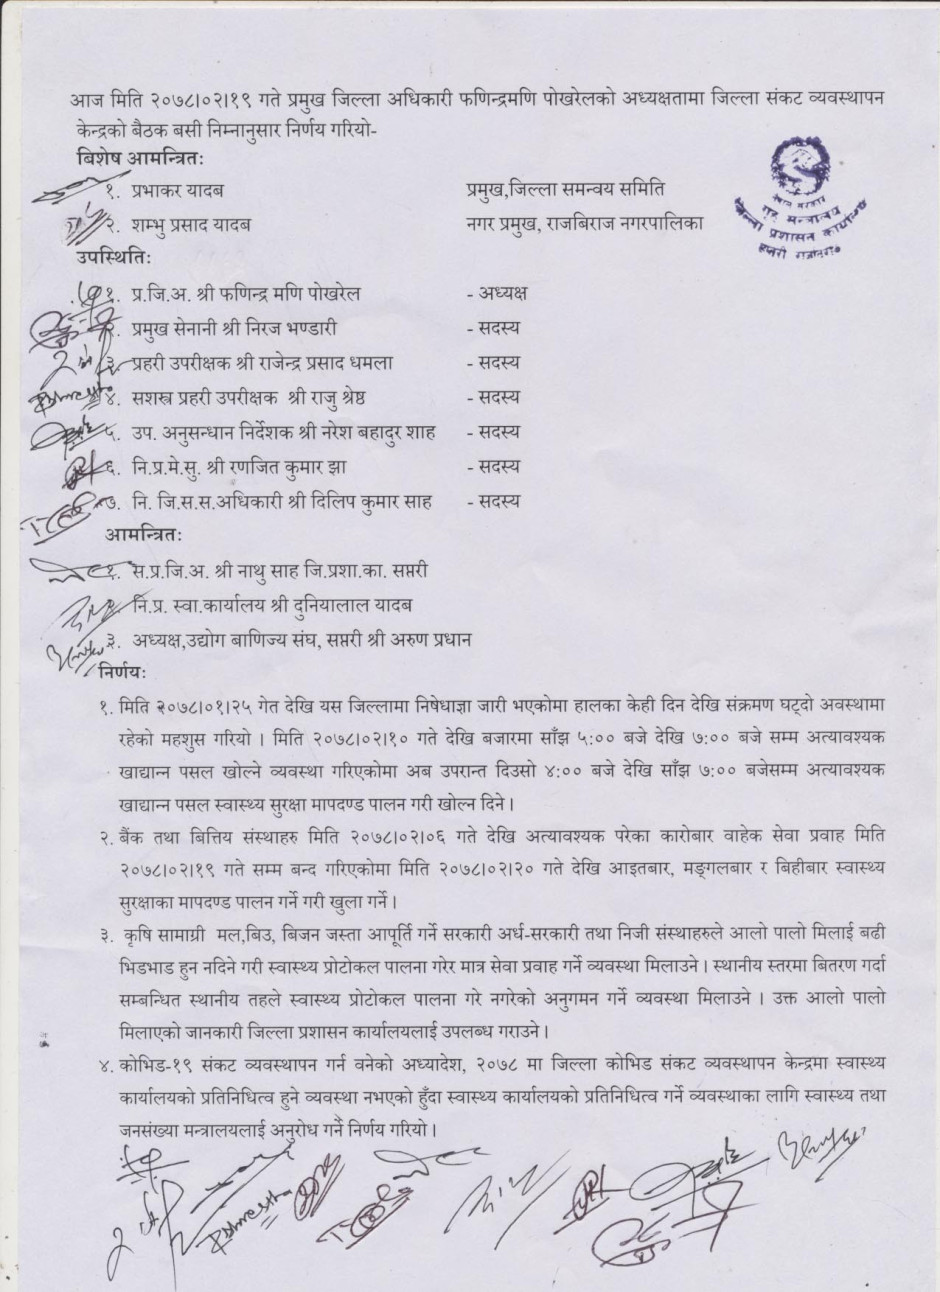 आज मिति २०७८।०२।१९ गते प्रमुख जिल्ला अधिकारी फणिन्द्रमणि पोखरेलको अध्यक्षतामा जिल्ला संकट व्यवस्थापन
केन्द्रको बैठक बसी निम्नानुसार निर्णय गरियो-
बिशेष आमन्त्रितः
१. प्रभाकर यादब प्रमुख,जिल्ला समन्वय समिति
२. शम्भु प्रसाद यादब नगर प्रमुख, राजबिराज नगरपालिका
नेपाल सरकार
गृह मन्त्रालय
जिल्ला प्रशासन कार्यालय
सप्तरी राजविराज
उपस्थितिः
१. प्र.जि.अ. श्री फणिन्द्र मणि पोखरेल - अध्यक्ष
२. प्रमुख सेनानी श्री निरज भण्डारी - सदस्य
३. प्रहरी उपरीक्षक श्री राजेन्द्र प्रसाद धमला - सदस्य
४. सशस्त्र प्रहरी उपरीक्षक श्री राजु श्रेष्ठ - सदस्य
५. उप. अनुसन्धान निर्देशक श्री नरेश बहादुर शाह - सदस्य
६. नि.प्र.मे.सु. श्री रणजित कुमार झा - सदस्य
७. नि. जि.स.स.अधिकारी श्री दिलिप कुमार साह - सदस्य
आमन्त्रितः
१. स.प्र.जि.अ. श्री नाथु साह जि.प्रशा.का. सप्तरी
नि.प्र. स्वा.कार्यालय श्री दुनियालाल यादब
३. अध्यक्ष,उद्योग बाणिज्य संघ, सप्तरी श्री अरुण प्रधान
निर्णयः
१. मिति २०७८।०१।२५ गेत देखि यस जिल्लामा निषेधाज्ञा जारी भएकोमा हालका केही दिन देखि संक्रमण घट्दो अवस्थामा
रहेको महशुस गरियो । मिति २०७८।०२।१० गते देखि बजारमा साँझ ५:०० बजे देखि ७:०० बजे सम्म अत्यावश्यक
खाद्यान्न पसल खोल्ने व्यवस्था गरिएकोमा अब उपरान्त दिउसो ४:०० बजे देखि साँझ ७:०० बजेसम्म अत्यावश्यक
खाद्यान्न पसल स्वास्थ्य सुरक्षा मापदण्ड पालन गरी खोल्न दिने ।
२. बैंक तथा बित्तिय संस्थाहरु मिति २०७८।०२।०६ गते देखि अत्यावश्यक परेका कारोबार वाहेक सेवा प्रवाह मिति
२०७८।०२।१९ गते सम्म बन्द गरिएकोमा मिति २०७८।०२।२० गते देखि आइतबार, मङ्गलबार र बिहीबार स्वास्थ्य
सुरक्षाका मापदण्ड पालन गर्ने गरी खुला गर्ने ।
३. कृषि सामाग्री मल,बिउ, बिजन जस्ता आपूर्ति गर्ने सरकारी अर्ध-सरकारी तथा निजी संस्थाहरुले आलो पालो मिलाई बढी
भिडभाड हुन नदिने गरी स्वास्थ्य प्रोटोकल पालना गरेर मात्र सेवा प्रवाह गर्ने व्यवस्था मिलाउने । स्थानीय स्तरमा बितरण गर्दा
सम्बन्धित स्थानीय तहले स्वास्थ्य प्रोटोकल पालना गरे नगरेको अनुगमन गर्ने व्यवस्था मिलाउने । उक्त आलो पालो
मिलाएको जानकारी जिल्ला प्रशासन कार्यालयलाई उपलब्ध गराउने ।
४. कोभिड-१९ संकट व्यवस्थापन गर्न वनेको अध्यादेश, २०७८ मा जिल्ला कोभिड संकट व्यवस्थापन केन्द्रमा स्वास्थ्य
कार्यालयको प्रतिनिधित्व हुने व्यवस्था नभएको हुँदा स्वास्थ्य कार्यालयको प्रतिनिधित्व गर्ने व्यवस्थाका लागि स्वास्थ्य तथा
जनसंख्या मन्त्रालयलाई अनुरोध गर्ने निर्णय गरियो ।